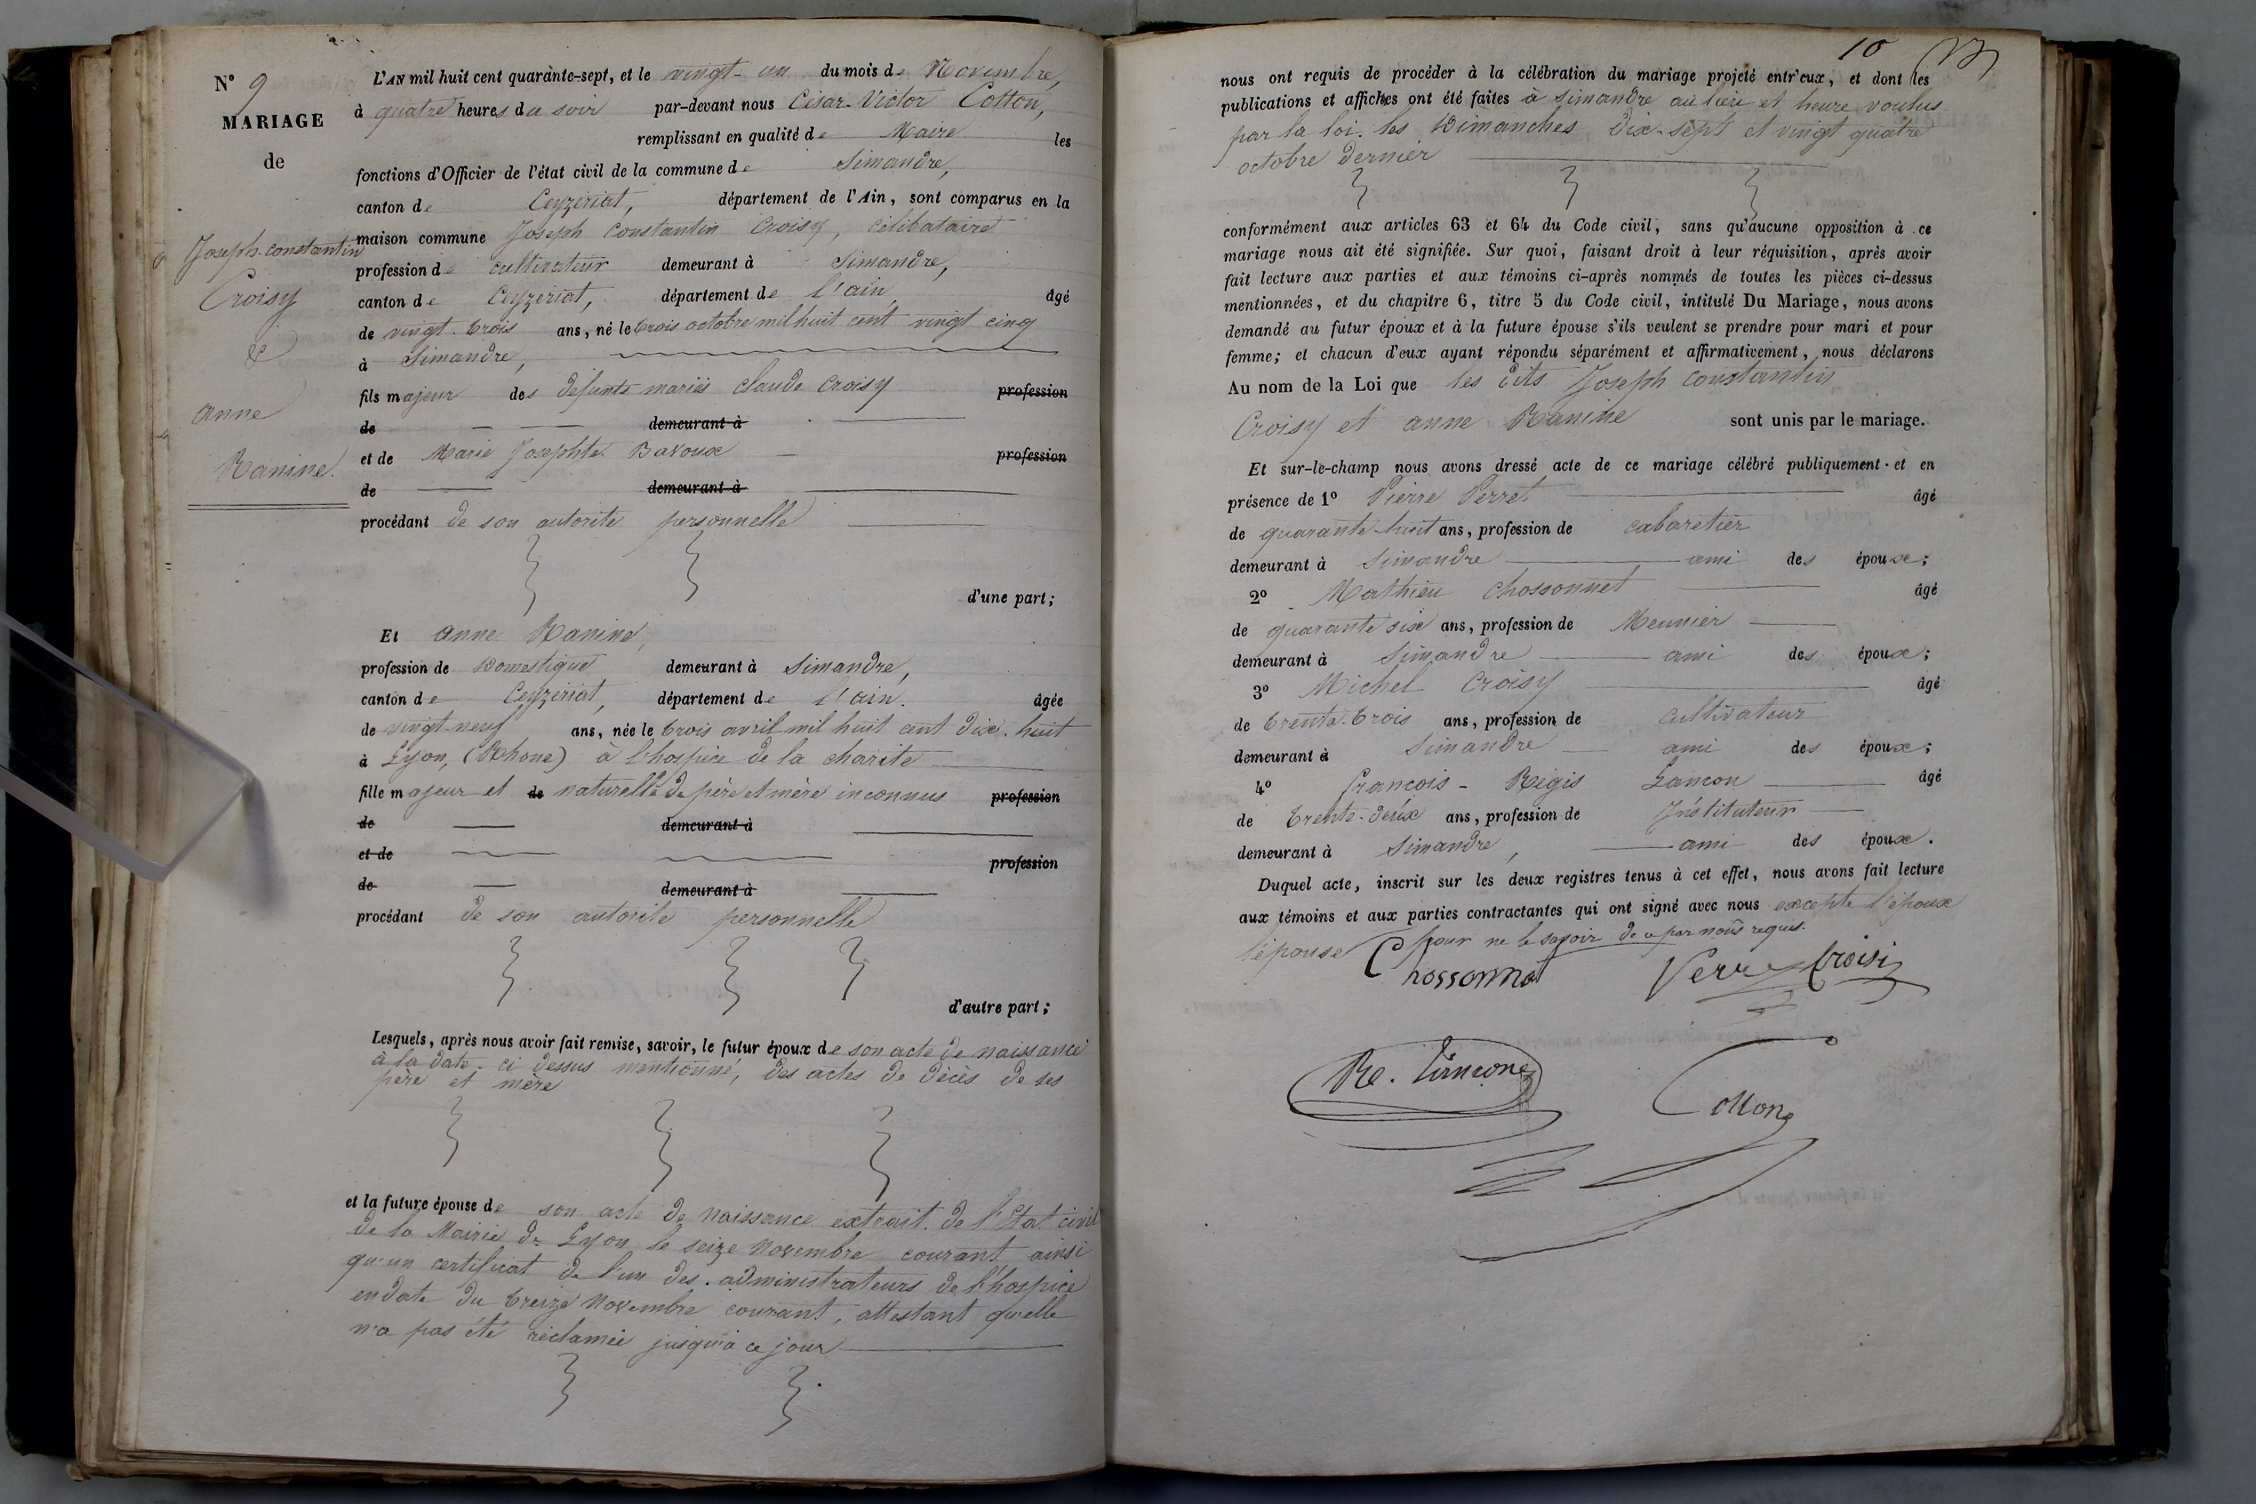 N° 9
MARIAGE
de
Joseph-constantin
Croisy
&
anne
Ranine.
L'AN mil huit cent quarante-sept, et le vingt-un du mois de Novembre,
à quatre heures du soir par-devant nous César-Victor Cotton,
remplissant en qualité de Maire les
fonctions d'Officier de l'état civil de la commune de Simandre,
canton de Ceyzériat, département de l'Ain, sont comparus en la
maison commune Joseph constantin Croisy, célibataire
profession de cultivateur demeurant à Simandre,
canton de Ceyzériat, département de l'ain âgé
de vingt-trois ans, né le trois octobre mil huit cent vingt cinq
à Simandre,
fils majeur des défunts mariés claude Croisy profession
de demeurant à
et de Marie Josephte Bavoux profession
de demeurant à
procédant de son autorité personnelle
d'une part;
Et anne Ranine,
profession de Domestique demeurant à Simandre,
canton de Ceyzériat, département de l'ain. âgée
de vingt-neuf ans, née le trois avril mil huit cent dix-huit
à Lyon, (Rhone) à l'hospice de la charité
fille majeur et de naturelle de père et mère inconnus profession
de demeurant à
et de profession
de demeurant à
procédant de son autorité personnelle
d'autre part;
Lesquels, après nous avoir fait remise, savoir, le futur époux de son acte de naissance
à la date ci dessus mentionné, des actes de décès de ses
père et mère
et la future épouse de son acte de naissance extrait de l'Etat civil
de la Mairie de Lyon le seize Novembre courant ainsi
qu'un certificat de l'un des administrateurs de l'hospice
en date du treize Novembre courant, attestant qu'elle
n'a pas été réclamée jusqu'à ce jour
10
nous ont requis de procéder à la célébration du mariage projeté entr'eux, et dont les
publications et affiches ont été faites à Simandre au lieu et heure voulus
par la loi. les Dimanches Dix-sept et vingt quatre
octobre dernier
conformément aux articles 63 et 64 du Code civil, sans qu'aucune opposition à ce
mariage nous ait été signifiée. Sur quoi, faisant droit à leur réquisition, après avoir
fait lecture aux parties et aux témoins ci-après nommés de toutes les pièces ci-dessus
mentionnées, et du chapitre 6, titre 5 du Code civil, intitulé Du Mariage, nous avons
demandé au futur époux et à la future épouse s'ils veulent se prendre pour mari et pour
femme; et chacun d'eux ayant répondu séparément et affirmativement, nous déclarons
Au nom de la Loi que les dits Joseph constantin
Croisy et anne Ranine sont unis par le mariage.
Et sur-le-champ nous avons dressé acte de ce mariage célébré publiquement et en
présence de 1° Pierre Perret âgé
de quarante-huit ans, profession de cabaretier
demeurant à Simandre ami des époux;
2° Mathieu Chossonnet âgé
de quarante six ans, profession de Meunier
demeurant à Simandre ami des époux;
3° Michel Croisy âgé
de trente-trois ans, profession de cultivateur
demeurant à Simandre ami des époux;
4° françois-Régis Lançon âgé
de trente-deux ans, profession de Instituteur
demeurant à Simandre, ami des époux.
Duquel acte, inscrit sur les deux registres tenus à cet effet, nous avons fait lecture
aux témoins et aux parties contractantes qui ont signé avec nous excepté l'époux
l'épouse pour ne le savoir de ce par nous requis.
Chossonnat Perret Croisi
Re. Lançon
Cotton